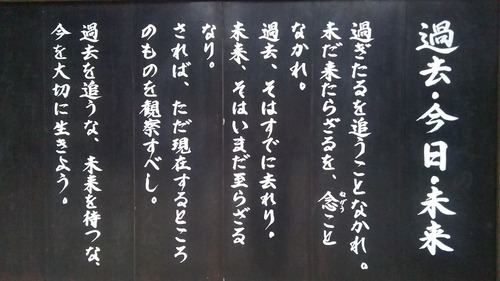 過去・今日・未来
過ぎたるを追うことなかれ。
未だ来たらざるを、念うこと
なかれ。
過去、そはすでに去れり。
未来、そはいまだ至らざる
なり。
されば、ただ現在するところ
のものを観察すべし。
過去を追うな、未来を待つな、
今を大切に生きよう。